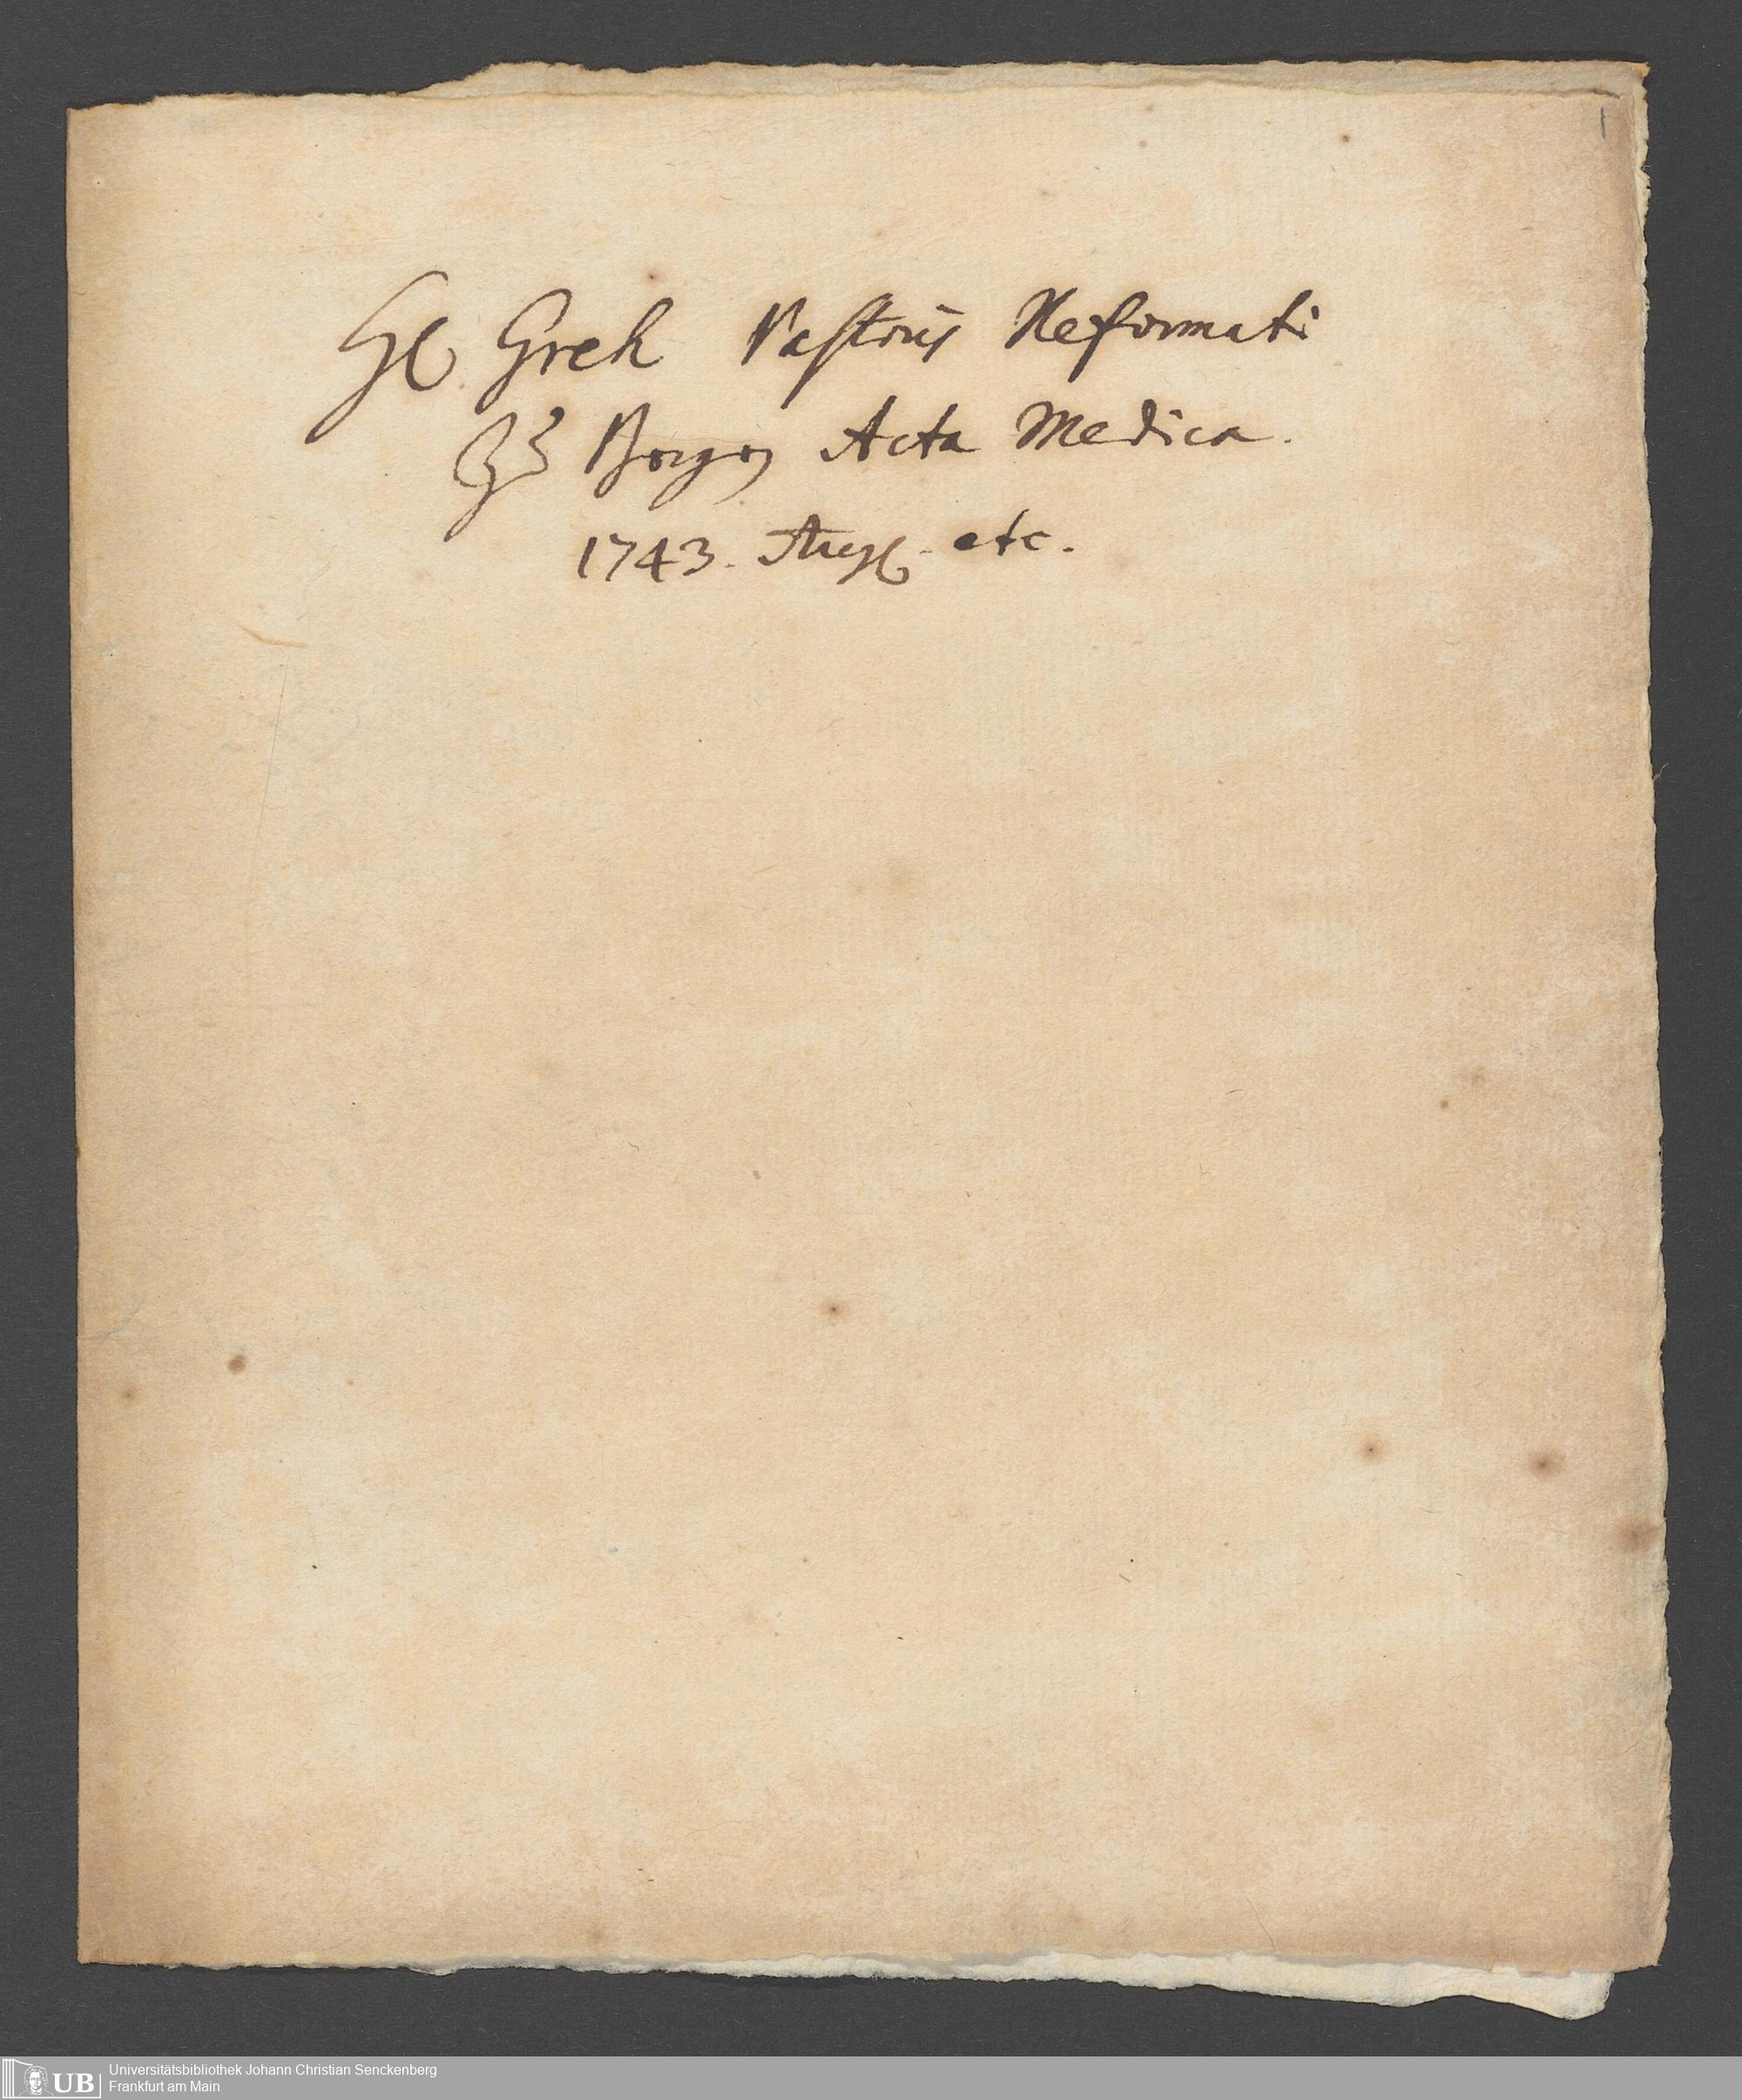 1
H Greh Pastoris Reformati
Acta Medica.
1743. Aug. etc.
UB
Universitätsbibliothek Johann Christian Senckenberg
Frankfurt am Main